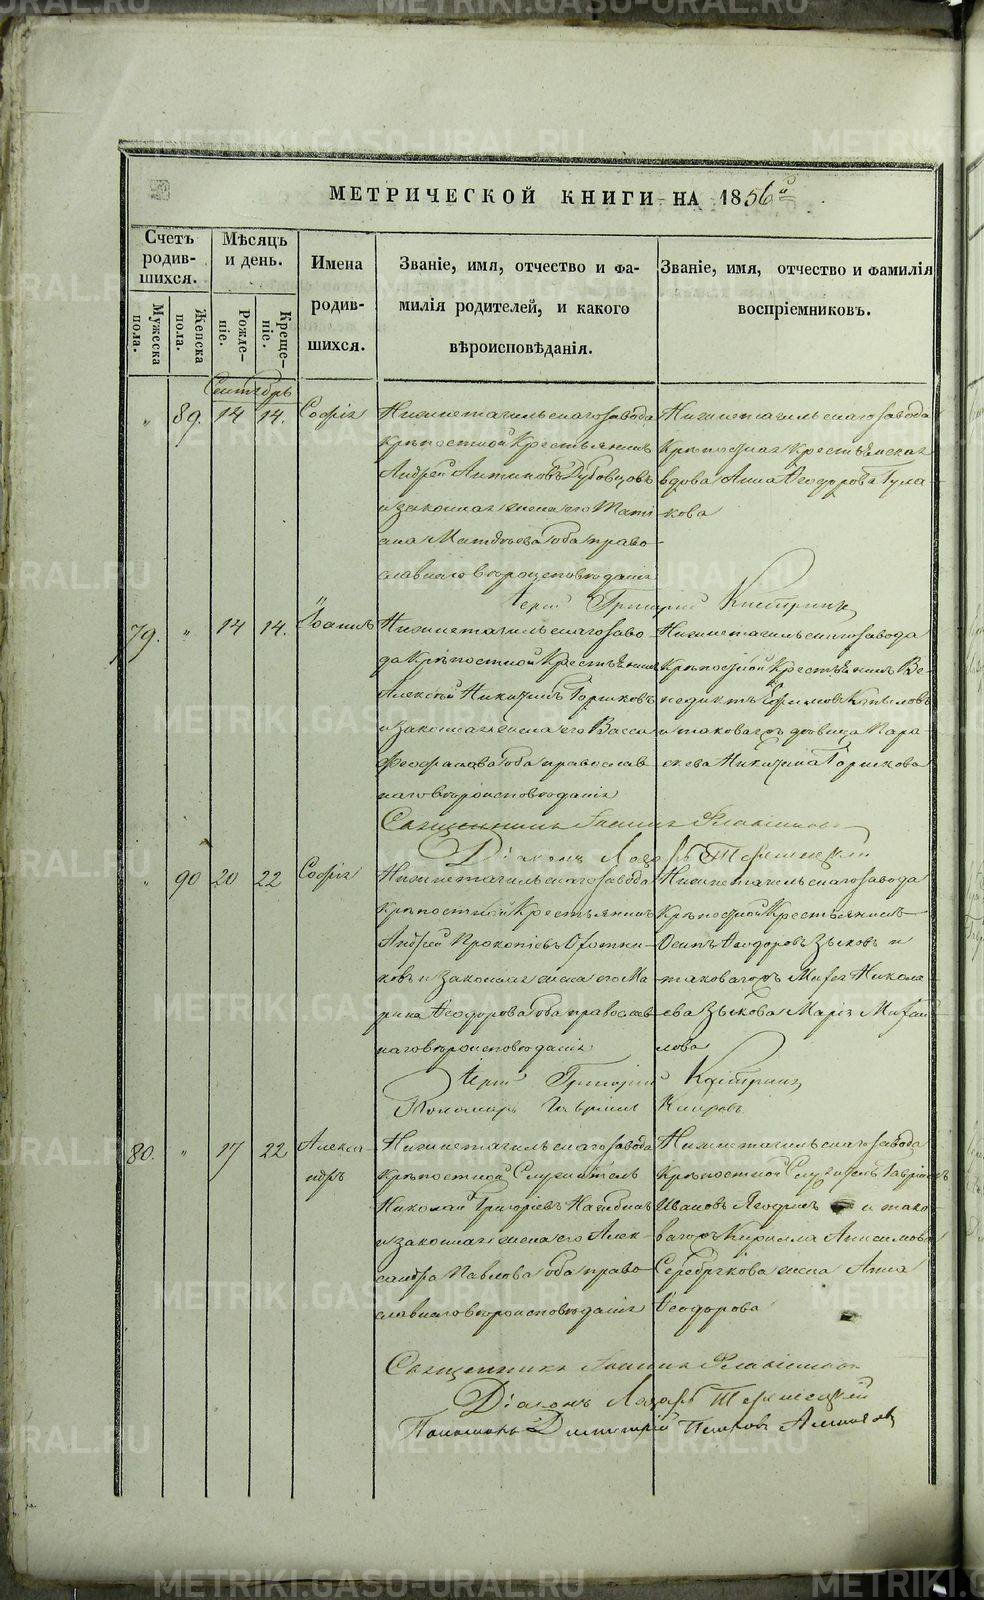 МЕТРИЧЕСКОЙ КНИГИ НА 1856й
Счетъ родив-шихся.
Мѣсяцъ и день.
Имена родив-шихся.
Званіе, имя, отчество и фа-
милія родителей, и какого
вѣроисповѣданія.
Званіе, имя, отчество и фамилія
воспріемниковъ.
Мужеска пола.
Женска пола.
Рожде-ніе.
Креще-ніе.
Сентябрь
" 89. 14 14. Софія
Нижнетагильскаго завода
крѣпостной Крестьянинъ
Андрей Антиповъ Дубовцовъ
и законная жена его Тати
ана Матвѣева оба право-
славнаго вѣроисповѣданія
Нижнетагильскаго завода
Крѣпостная Крестьянская
вдова Анна Ѳеодорова Гула
кова
Іерей Григорій
79. " 14 14. Іоаннъ
Нижнетагильскаго заво-
да Крѣпостной Крестьянинъ
Алексѣй Никитинъ Горшковъ
и законная жена его Васса
Феофанова оба православ-
наго вѣроисповѣданія
Нижнетагильскаго завода
Крѣпостной Крестьянинъ Ве-
недиктъ Ефимовъ
и таковагожъ дѣвица Пара-
скева Никитина Горшкова
Священникъ Іоаннъ Флавіановъ
Діаконъ Лазарь
" 90 20 22 Софія
Нижнетагильскаго завода
крѣпостной Крестьянинъ
Андрей Прокопіевъ Охотни-
ковъ и законная жена его Ма
рина Ѳеодорова оба православ-
наго вѣроисповѣданія
Нижнетагильскаго завода
Крѣпостной Крестьянинъ
Осипъ Ѳеодоровъ Зыковъ и
таковагожъ Никола-
ева Зыкова Марія Михай-
лова
Іерей Григорій
Пономарь Гавріилъ Кипровъ
80. " 17 22 Алекса-
ндръ
Нижнетагильскаго завода
крѣпостной Служитель
Николай Григоріевъ Нагибинъ
и законная жена его Алек-
сандра Павлова оба право-
славнаго вѣроисповѣданія
Нижнетагильскаго завода
Крѣпостной Служитель Гавріилъ
Ивановъ Ягодинъ и тако-
вагожъ Кирилла Анисимова
Серебрякова жена Анна
Ѳеодорова
Священникъ Іоаннъ Флавіановъ
Діаконъ Лазарь
Пономарь Димитрій Петровъ
METRIKI.GASO-URAL.RU